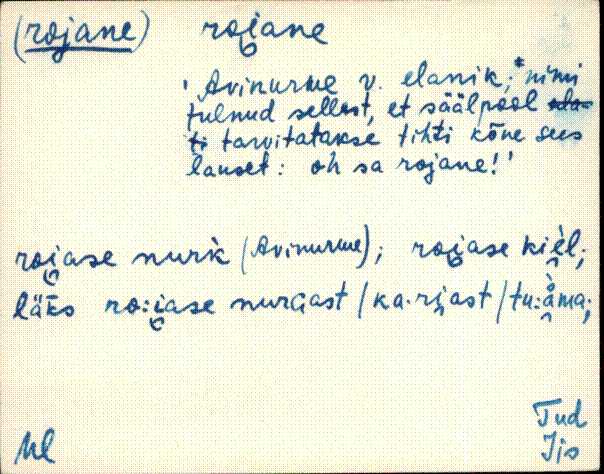 (rojane) roi̯ane
'Avinurme v. elanik; *nimi
tulnud sellest, et säälpool ala-
ti tarvitatakse tihti kõne sees
lauset: oh sa rojane!'
roi̯ase nurk̀ (Avinurme); roi̯ase kièl;
läks ro:i̯ase nurGast / ka·rjast /
Ml
Tud
Iis